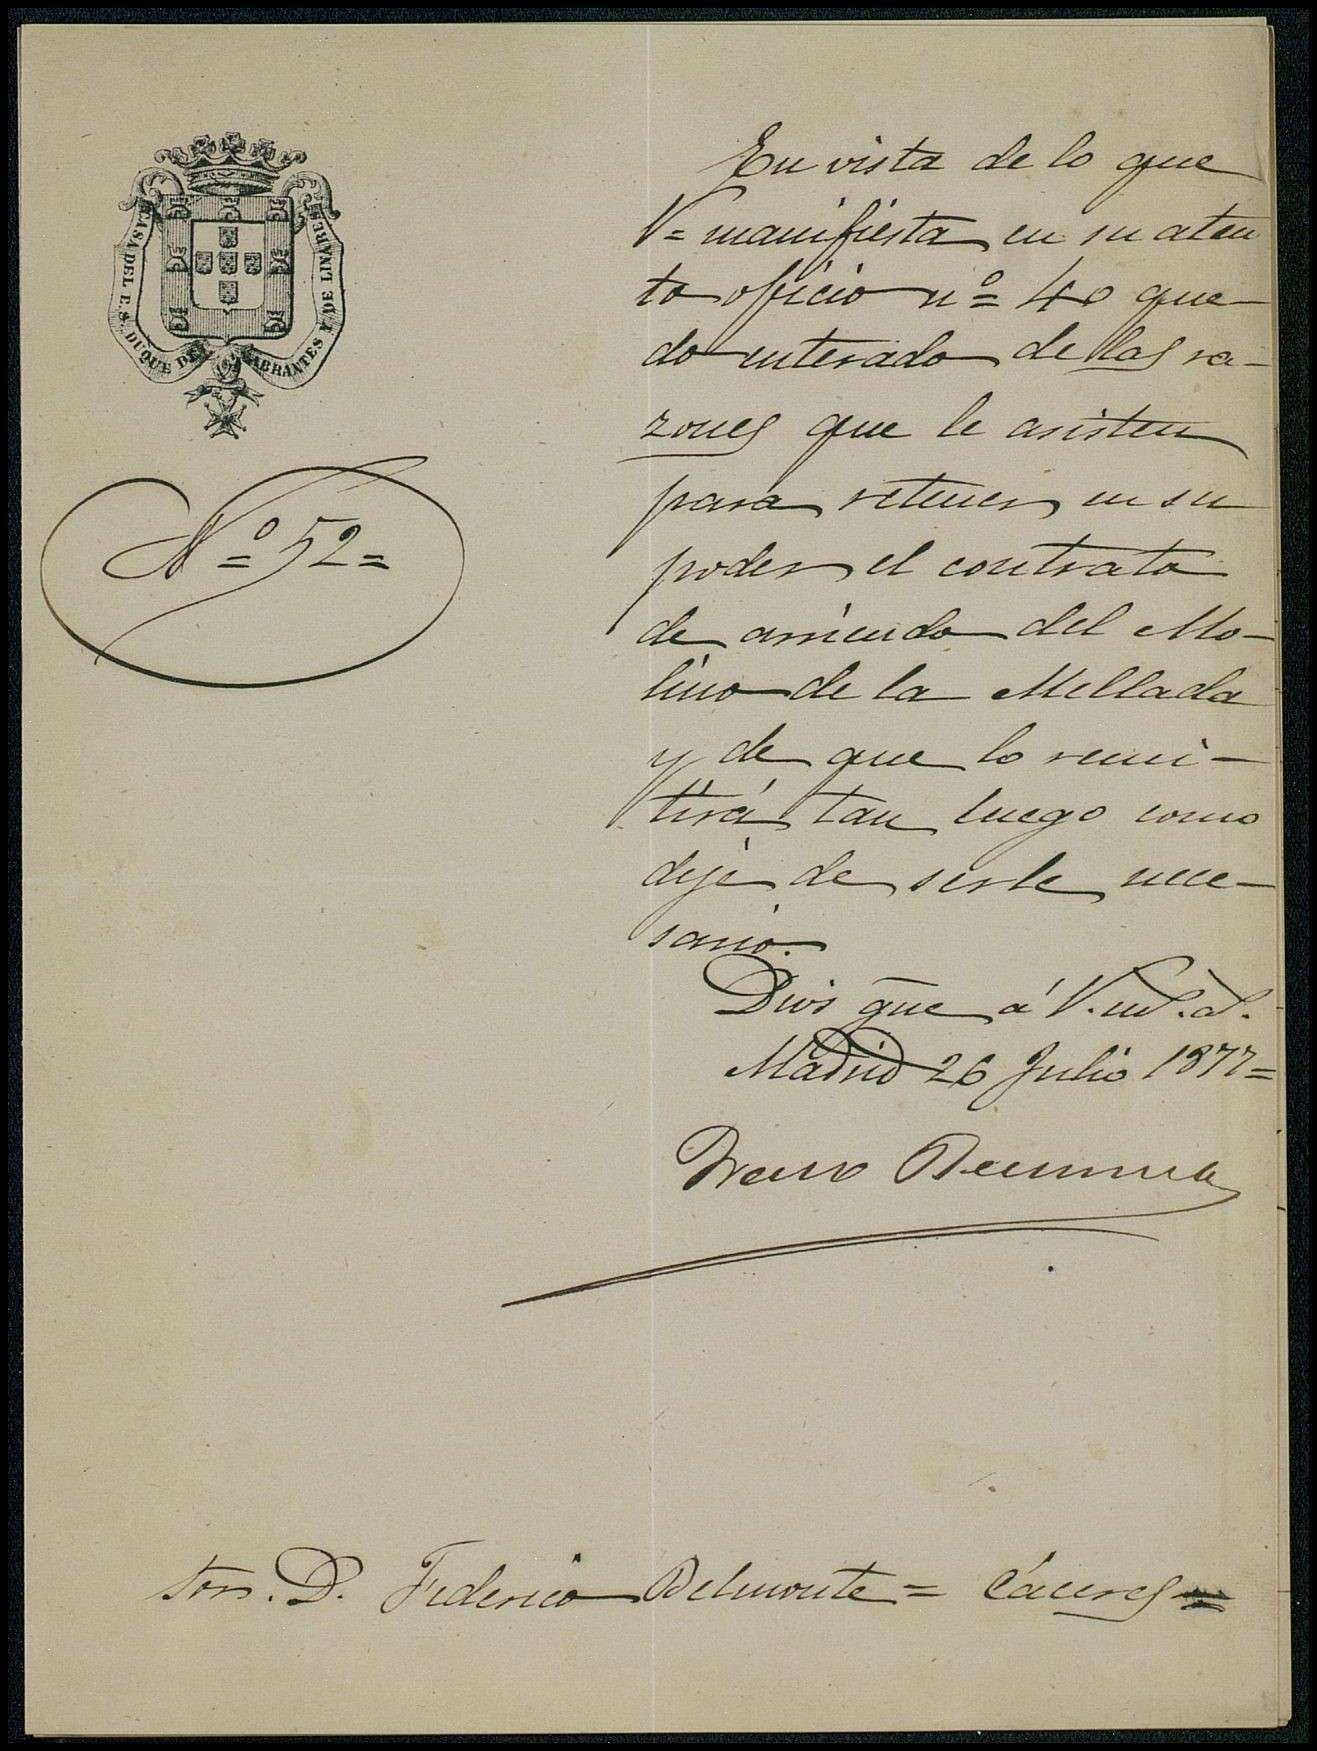 CASA DEL E. S. DUQUE DE ABRANTES Y DE LINARES
Nº 52=
En vista de lo que
V= manifiesta en su aten
to oficio nº= 40 que-
do enterado de las ra-
zones que le asisten
para retener en su
poder el contrato
de arriendo del Mo-
lino de la Mellada
y de que lo remi-
tirá tan luego como
deje de serle nece-
sario.
Dios gue á V. ms. as.
Madrid 26 Julio 1877=
Sor. D. Federico Belmonte = Cáceres=